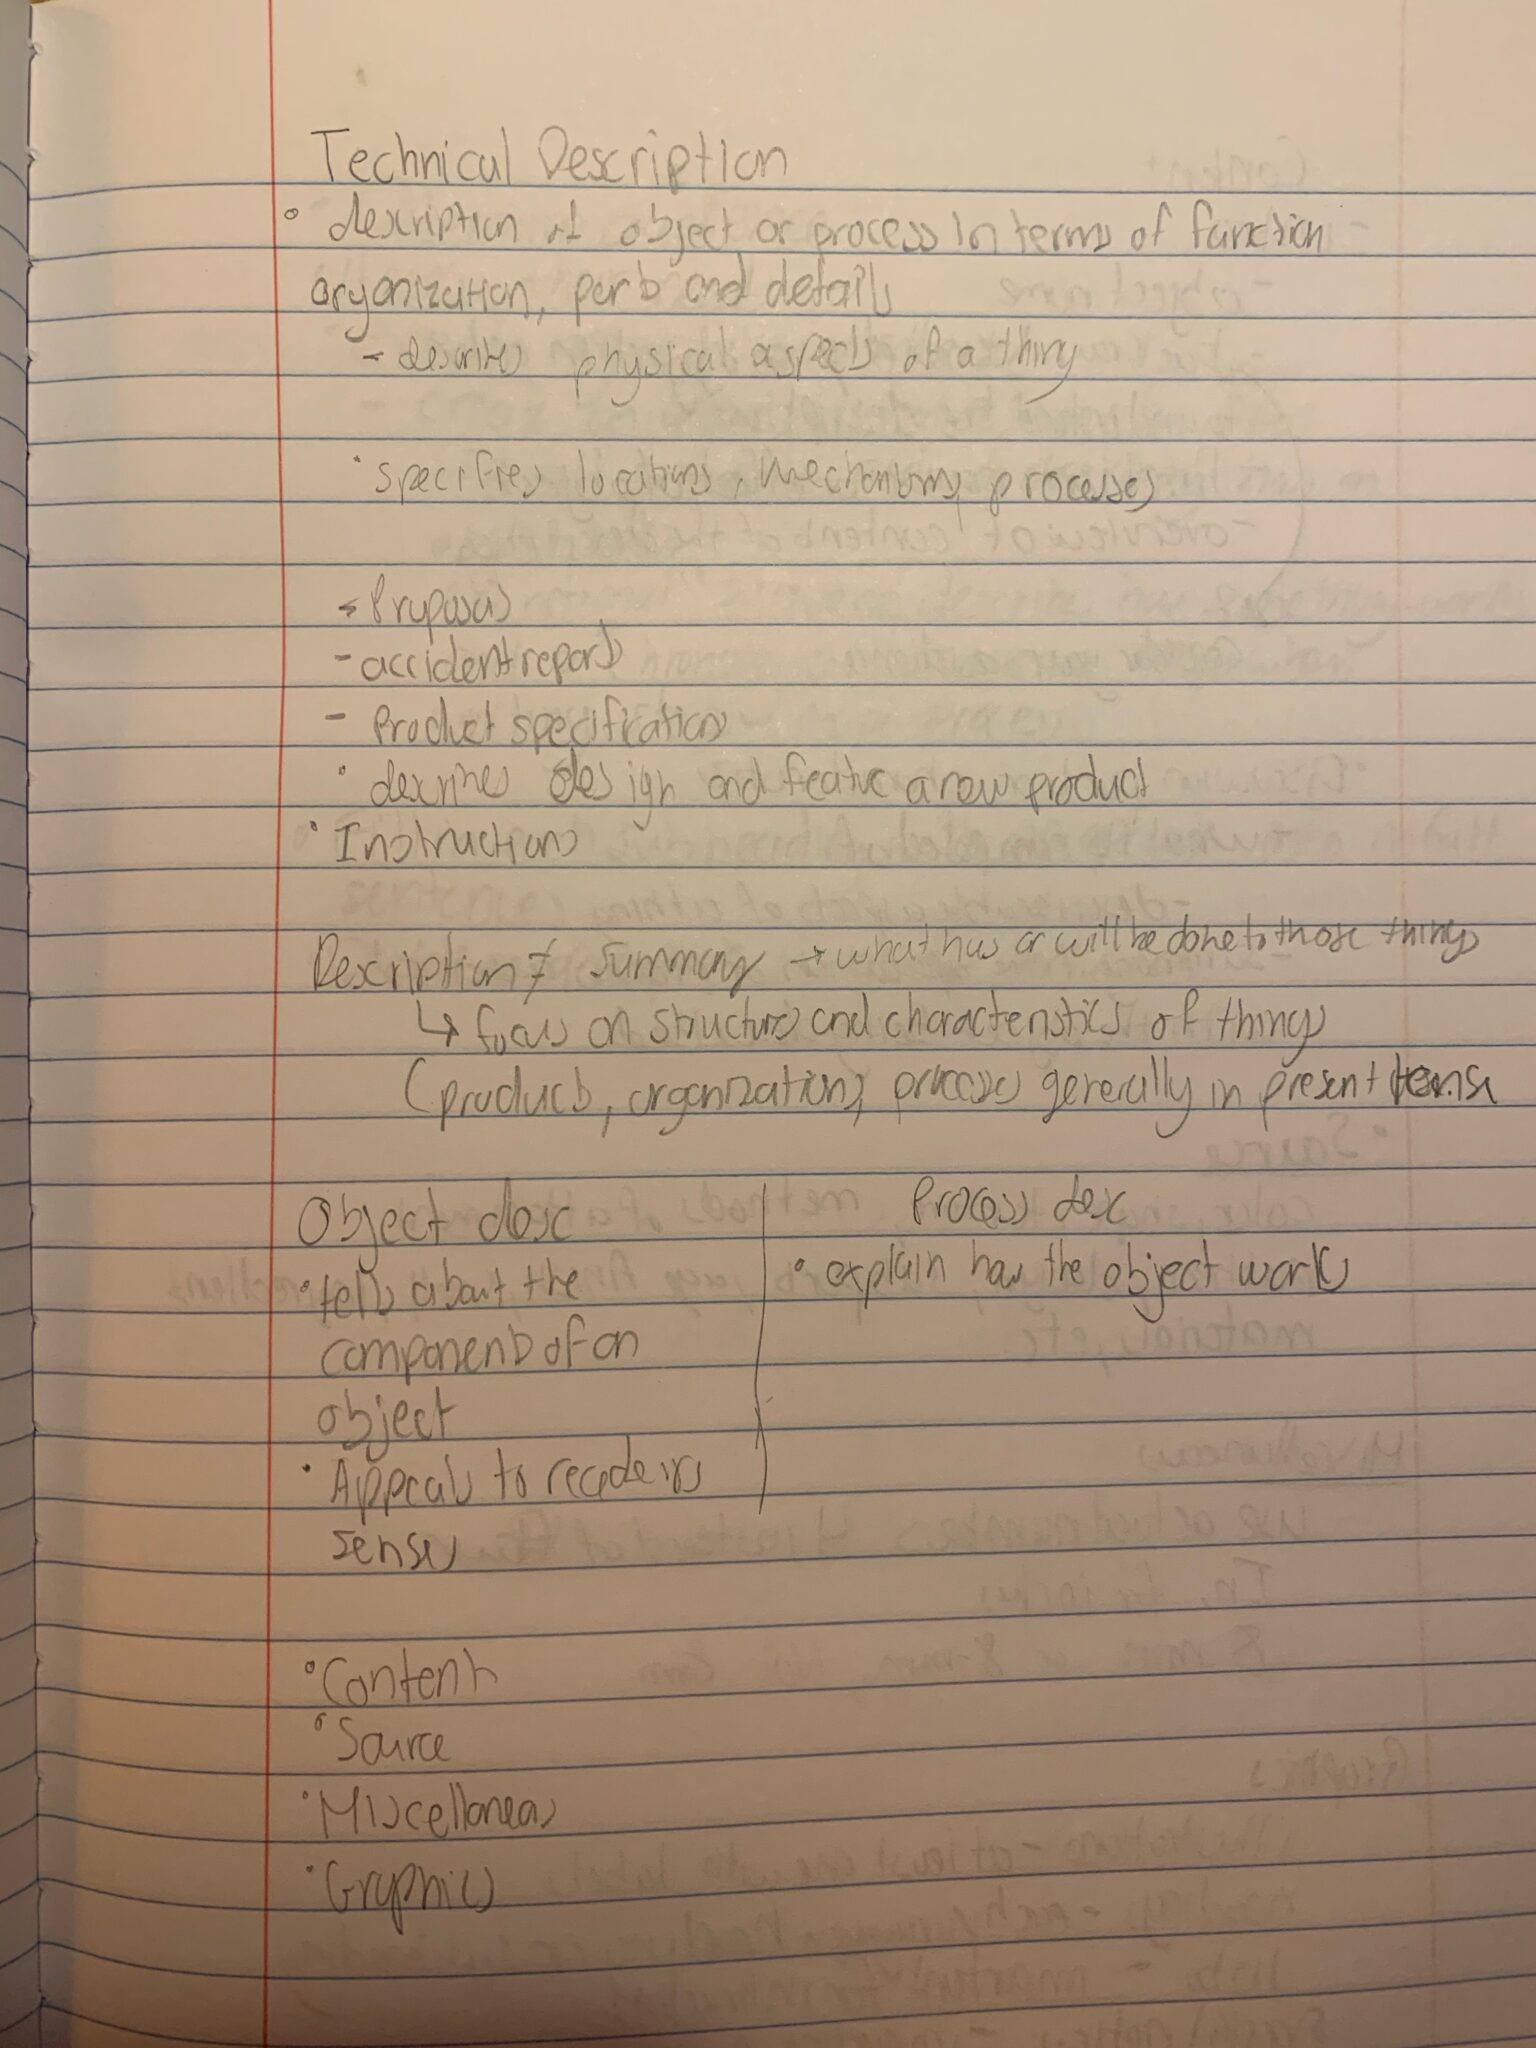 Technical Description
° description of object or process in terms of function
organization, parts and details
- describes physical aspects of a thing
• specifies locations, mechanisms, processes
- Proposals
- accident reports
- Product specifications
• describes design and feature a new product
• Instructions
Description ≠ Summary → what has or will be done to those things
↳ focus on structures and characteristics of things
(products, organizations, processes generally in present tense
Object desc
• tells about the
components of an
object
• Appeals to readers
senses
Process desc
• explain how the object works
• Content
• Source
• Miscellaneous
• Graphics